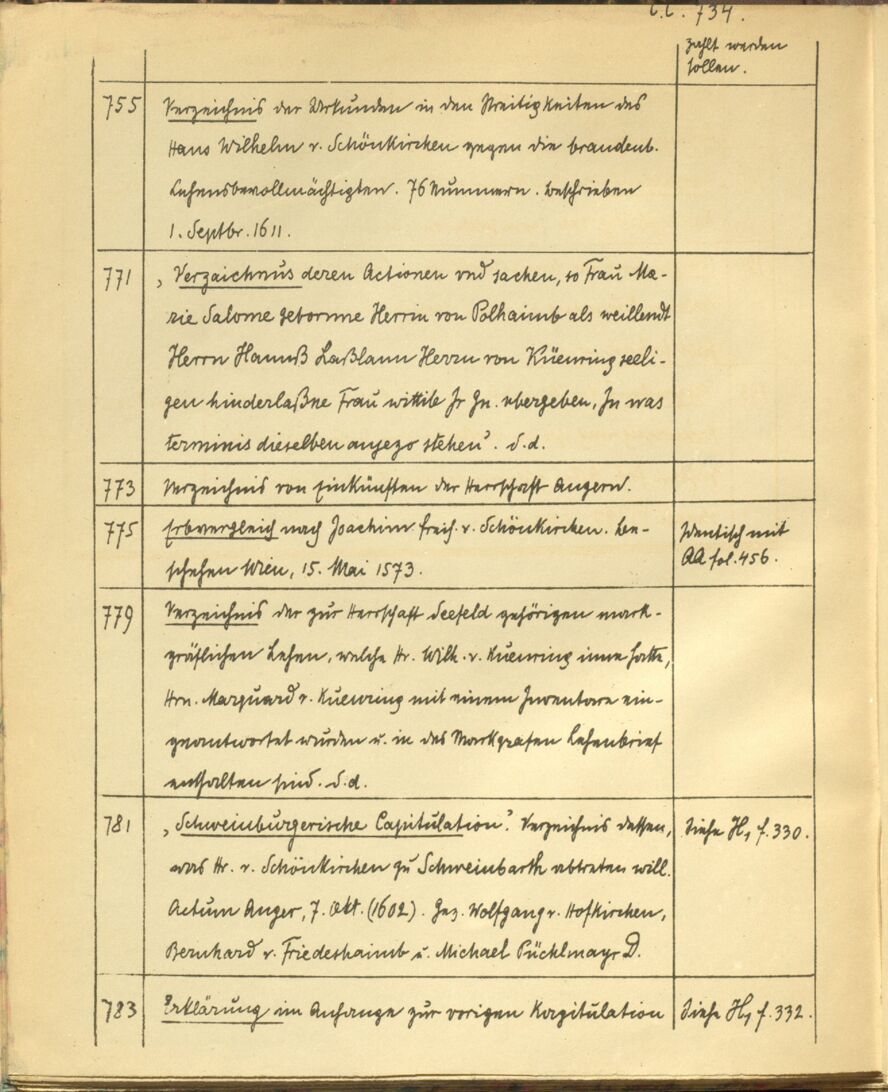 C.C. 734.
zahlt werden
sollen.
755 Verzeichnis der Urkunden in den Streitigkeiten des
Hans Wilhelm v. Schönkirchen gegen die brandenb.
Lehensbevollmächtigten. 76 Nummern. Beschrieben
1. Septbr. 1611.
771 „Verzaichnus deren Actionen vnd sachen, so Frau Ma-
rie Salome geborne Herrin von Polhaimb als weillendt
Herrn Hannß Laßlann Herrn von Küenring seeli-
gen hinderlaßne Frau wittib Jr Gn. vbergeben, Jn was
terminis dieselben anjezo stehen“. S.d.
773 Verzeichnis von Einkünften der Herrschaft Angern.
775 Erbvergleich nach Joachim Freih. v. Schönkirchen. Be-
schehen Wien, 15. Mai 1573.
Identisch mit
AA fol. 456.
779 Verzeichnis der zur Herrschaft Seefeld gehörigen mark-
gräflichen Lehen, welche Hr. Wilh. v. Kuenring inne hatte,
Hrn. Marquard v. Kuenring mit einem Inventare ein-
geantwortet wurden u. in des Markgrafen Lehenbrief
enthalten sind. S.d.
781 „Schweinburgerische Capitulation“. Verzeichnis dessen,
was Hr. v. Schönkirchen zu Schweinbarth abtreten will.
Actum Anger, 7. Okt. (1602). Gez. Wolfgang v. Hofkirchen,
Bernhard v. Friedeshaimb u. Michael Pücklmayr D.
Siehe H, f. 330.
783 Erklärung im Anhange zur vorigen Kapitulation
Siehe H, f. 332.